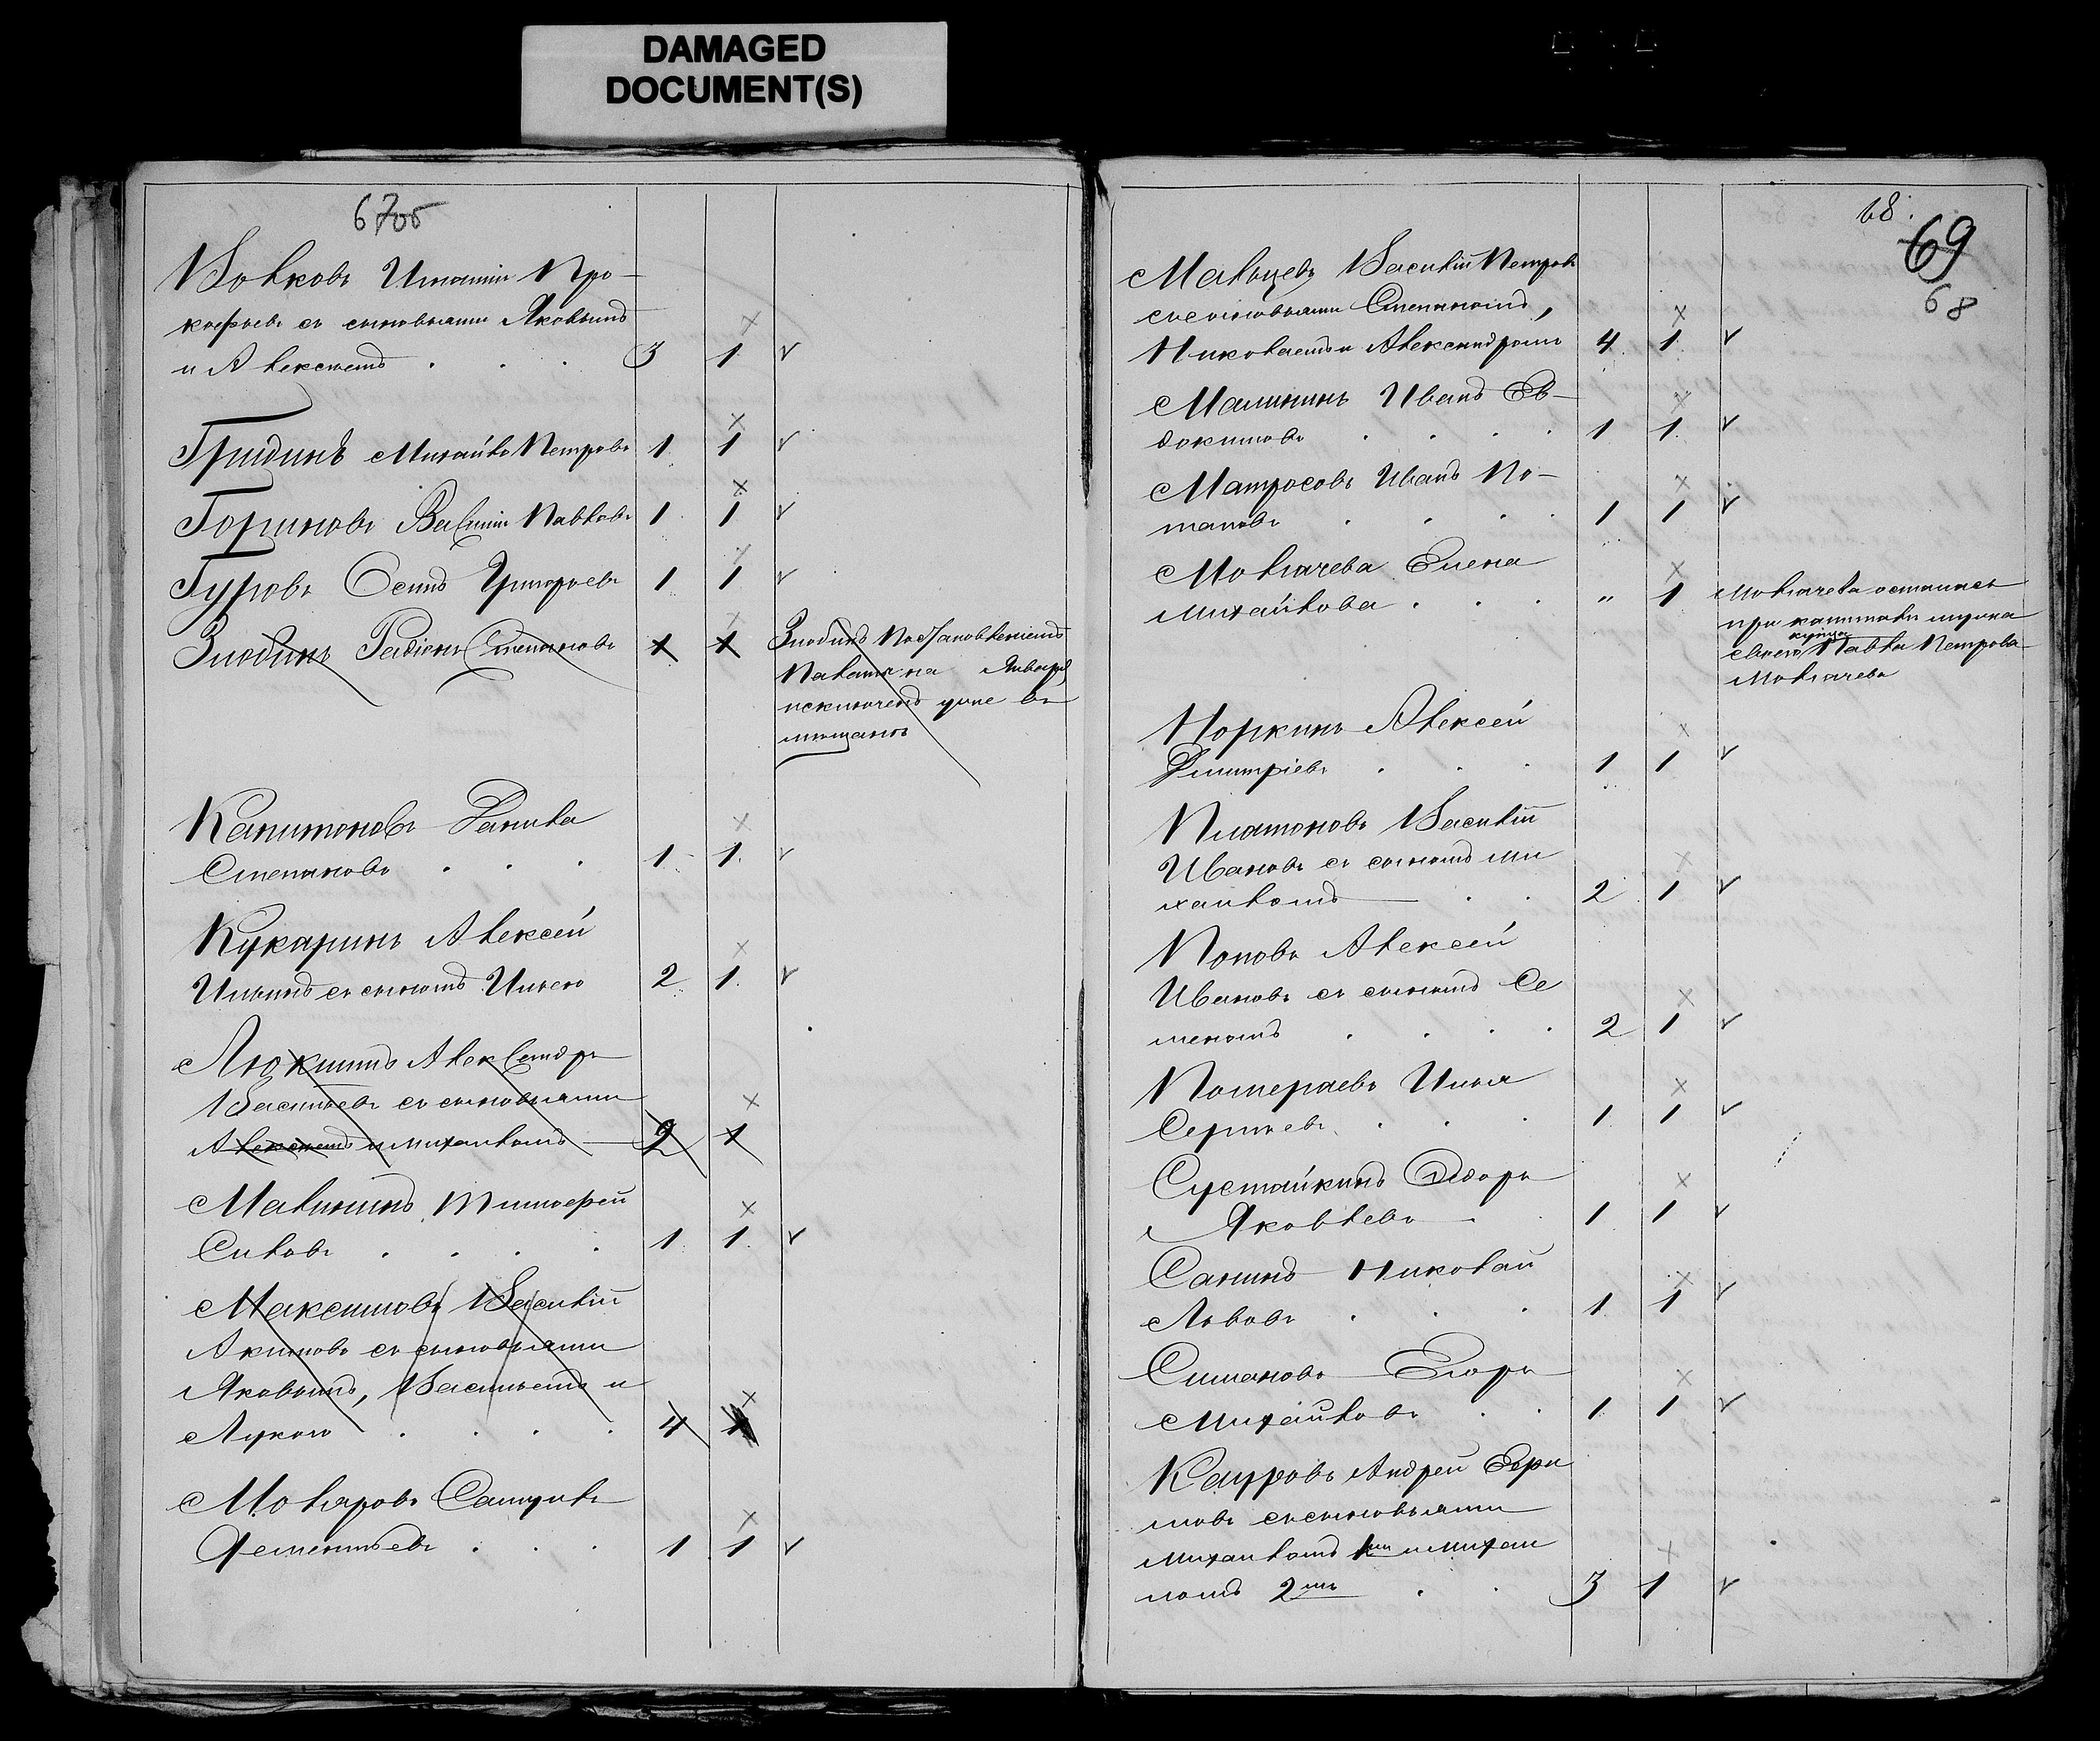 DAMAGED
DOCUMENT(S)
67об
Волковъ Игнатій Про-
кофьевъ съ сыновьями Яковымъ
и Алексѣемъ . . . 3 1 v
Гридинъ Михайло Петровъ 1 1 v
Горшковъ Василій Павловъ 1 1 v
Гуровъ Осипъ Григорьевъ 1 1 v
Злобинъ Родіонъ Степановъ 1 1 Злобинъ Постановленіемъ
Палаты на Январь
исключенъ уже въ
мѣщанъ
Капитоновъ Данила
Степановъ . . . 1 1 v
Кукаринъ Алексѣй
Ильинъ съ сыномъ Ильею 2 1 v
Люкшинъ Александръ
Васильевъ съ сыновьями
Алексѣемъ и Михаиломъ 2 1
Малининъ Тимофей
Силовъ . . . . 1 1 v
Максимовъ Василій
Акимовъ съ сыновьями
Яковымъ, Васильемъ и
Лукою . . . . 4 1
Моляровъ Самуилъ
Дементьевъ . . . 1 1 v
68.
69
68
Мальцевъ Василій Петровъ
съ сыновьями Степаномъ,
Николаемъ и Александромъ 4 1 v
Малининъ Иванъ Ев-
докимовъ . . . . 1 1 v
Матросовъ Иванъ По-
таповъ . . . . 1 1 v
Молчачева Елена
Михайлова . . . " 1 Молчачева осталась
при капиталѣ мужа
купца
своего Павла Петрова
Молчачева
Норкинъ Алексѣй
Дмитріевъ . . . 1 1 v
Платоновъ Василій
Ивановъ съ сыномъ Ми
хаиломъ . . 2 1 v
Поповъ Алексѣй
Ивановъ съ сыномъ Се
меномъ . . . . 2 1 v
Потераевъ Илья
Сергѣевъ . . . 1 1 v
Сустайкинъ Ѳедоръ
Яковлевъ . . 1 1 v
Санинъ Николай
Львовъ . . . 1 1 v
Симановъ Егоръ
Михайловъ . . 1 1 v
Кауровъ Андрей Ефи
мовъ съ сыновьями
Михаиломъ 1мъ и Михаи
ломъ 2мъ . . 3 1 v